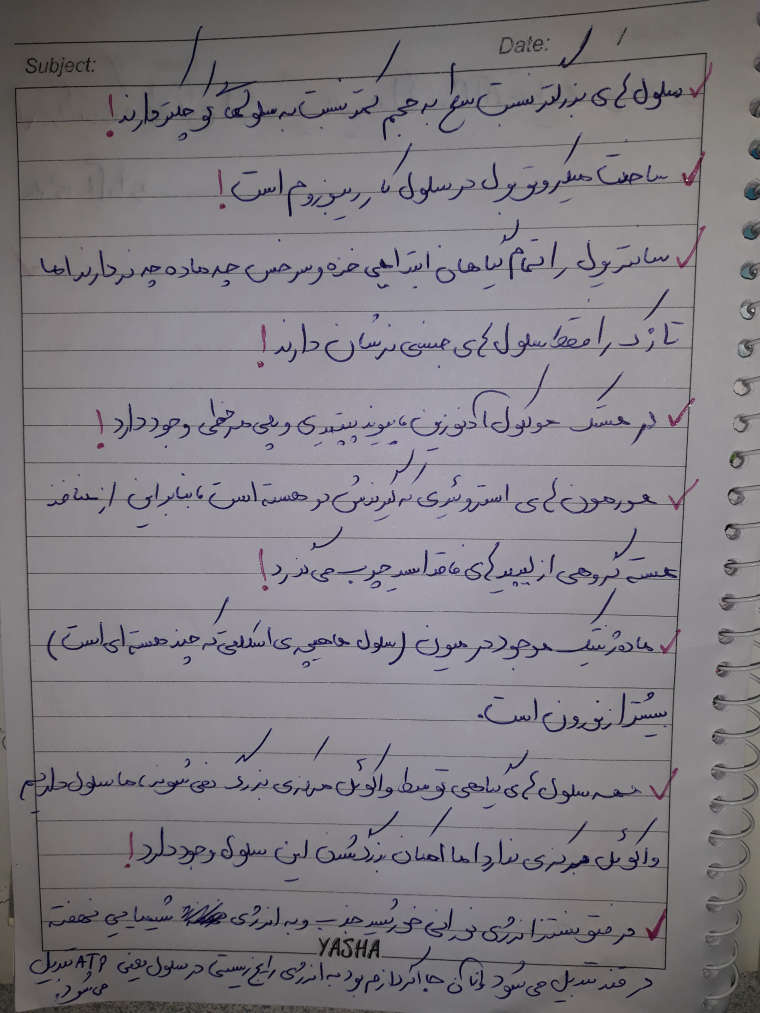 Subject:
Date: / /
سلول های بزرگتر نسبت سطح به حجم کمتر نسبت به سلولهای کوچکتر دارند!
ساخت میکروتوبول در سلول کار ریبوزوم است!
سانتریول را تمام گیاهان ابتدایی خزه و سرخس چه ماده چه نر دارند اما
تاژک را فقط سلول های جنسی نرشان دارند!
در مولکول آدنوزین پیوند پپتیدی و وجود دارد!
هورمون های استروئیدی که گیرندش در هسته است بنابراین از منافذ
هسته گروهی از لیپیدهای فاقد اسید چرب می گذرد!
ماده ژنتیک موجود در میون (سلول ماهیچه ی اسکلتی که چند هسته ای است)
بیشتر از نورون است.
همه سلول های گیاهی توسط واکوئل مرکزی بزرگ نمی شوند، ما سلول داریم
واکوئل مرکزی ندارد اما امکان بزرگ شدن این سلول وجود دارد!
در فتوسنتز انرژی نورانی خورشید جذب و به انرژی شیمیایی نهفته
YASHA
در قند تبدیل می شود به انرژی رایج زیستی در سلول یعنی ATP تبدیل
می شود!